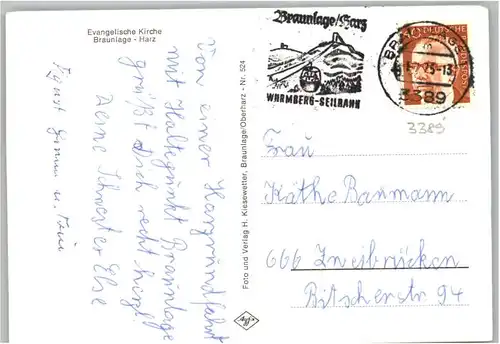 Evangelische Kirche
Braunlage - Harz
Von einer Harzrundfahrt
mit Haltepunkt Braunlage
grüßt Dich recht herzl.
Deine Schwester Else
Foto und Verlag H. Kiesewetter, Braunlage/Oberharz - Nr. 524
Braunlage/Harz
WURMBERG-SEILBAHN
3389
3389
Frau
Käthe Baumann
666 Zweibrücken
Bitscherstr 94